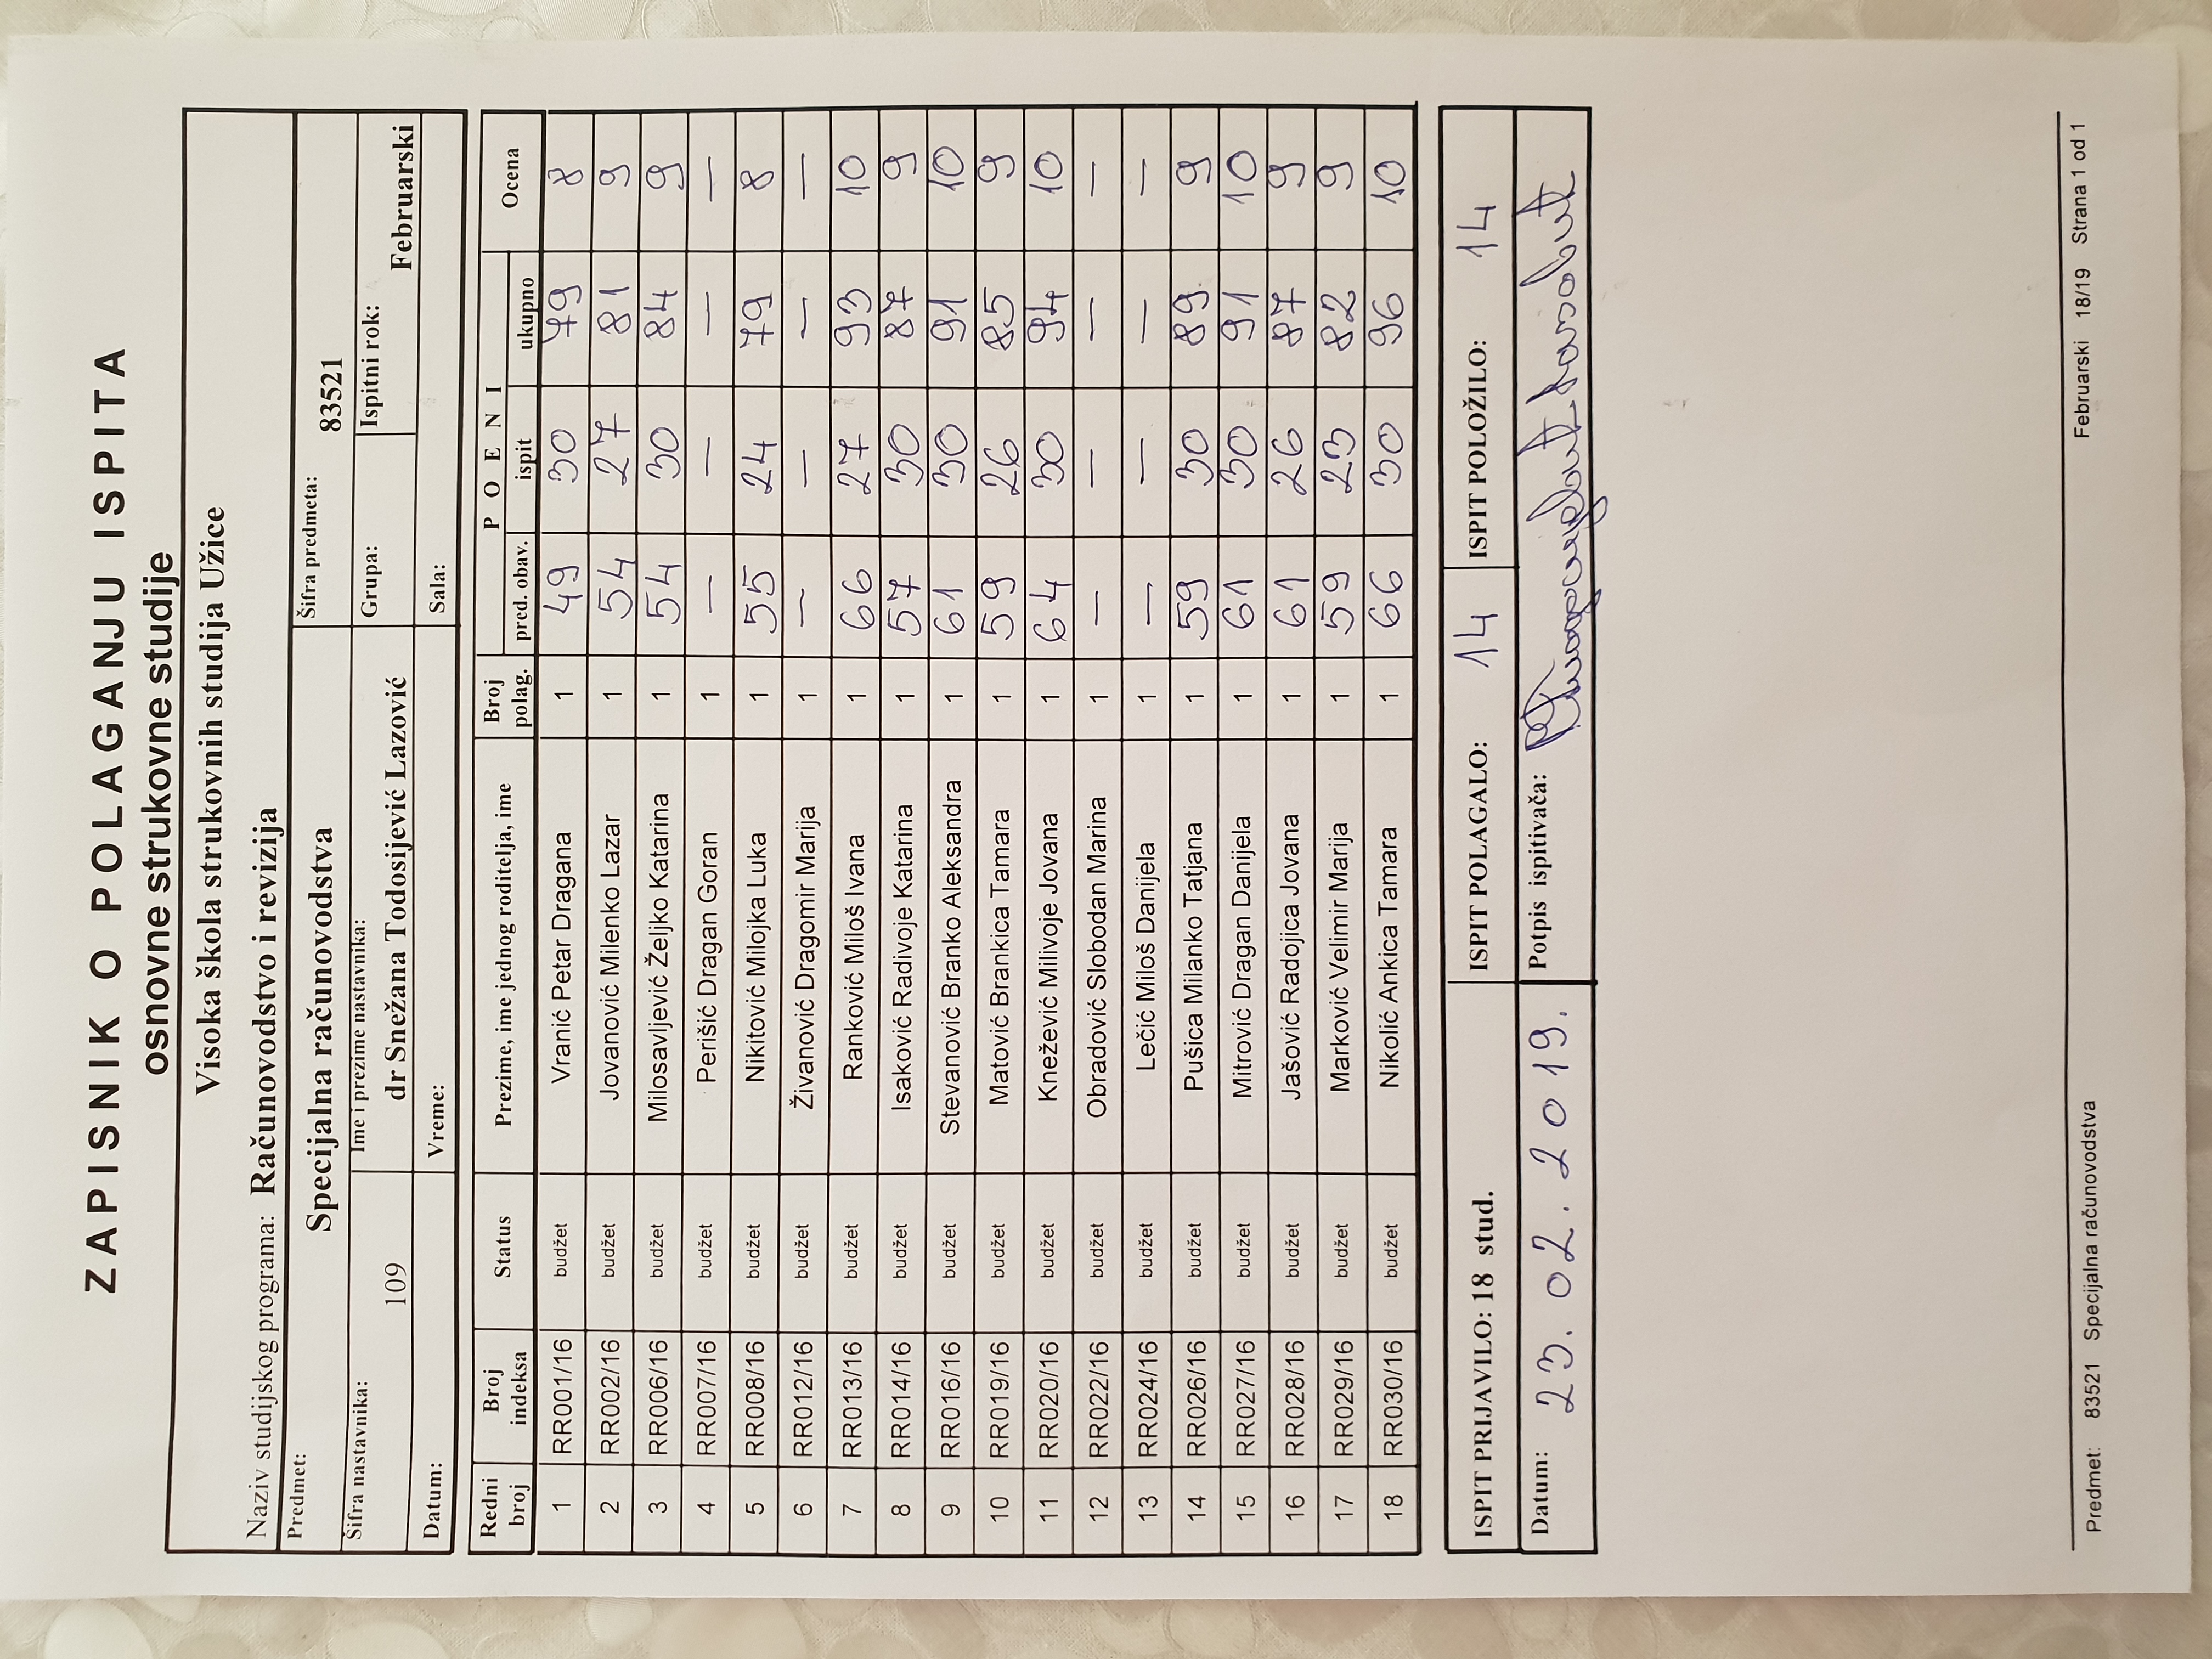 ZAPISNIK O POLAGANJU ISPITA
osnovne strukovne studije
Visoka škola strukovnih studija Užice
Naziv studijskog programa: Računovodstvo i revizija
Predmet: Specijalna računovodstva Šifra predmeta: 83521
Šifra nastavnika: 109 Ime i prezime nastavnika: dr Snežana Todosijević Lazović Grupa: Ispitni rok: Februarski
Datum: Vreme: Sala:
Redni broj Broj indeksa Status Prezime, ime jednog roditelja, ime Broj polag. P O E N I pred. obav. ispit ukupno Ocena
1 RR001/16 budžet Vranić Petar Dragana 1 49 30 79 8
2 RR002/16 budžet Jovanović Milenko Lazar 1 54 27 81 9
3 RR006/16 budžet Milosavljević Željko Katarina 1 54 30 84 9
4 RR007/16 budžet Perišić Dragan Goran 1 — — — —
5 RR008/16 budžet Nikitović Milojka Luka 1 55 24 79 8
6 RR012/16 budžet Živanović Dragomir Marija 1 — — — —
7 RR013/16 budžet Ranković Miloš Ivana 1 66 27 93 10
8 RR014/16 budžet Isaković Radivoje Katarina 1 57 30 87 9
9 RR016/16 budžet Stevanović Branko Aleksandra 1 61 30 91 10
10 RR019/16 budžet Matović Brankica Tamara 1 59 26 85 9
11 RR020/16 budžet Knežević Milivoje Jovana 1 64 30 94 10
12 RR022/16 budžet Obradović Slobodan Marina 1 — — — —
13 RR024/16 budžet Lečić Miloš Danijela 1 — — — —
14 RR026/16 budžet Pušica Milanko Tatjana 1 59 30 89 9
15 RR027/16 budžet Mitrović Dragan Danijela 1 61 30 91 10
16 RR028/16 budžet Jašović Radojica Jovana 1 61 26 87 9
17 RR029/16 budžet Marković Velimir Marija 1 59 23 82 9
18 RR030/16 budžet Nikolić Ankica Tamara 1 66 30 96 10
ISPIT PRIJAVILO: 18 stud. ISPIT POLAGALO: 14 ISPIT POLOŽILO: 14
Datum: 23. 02. 2019. Potpis ispitivača:
Predmet: 83521 Specijalna računovodstva Februarski 18/19 Strana 1 od 1